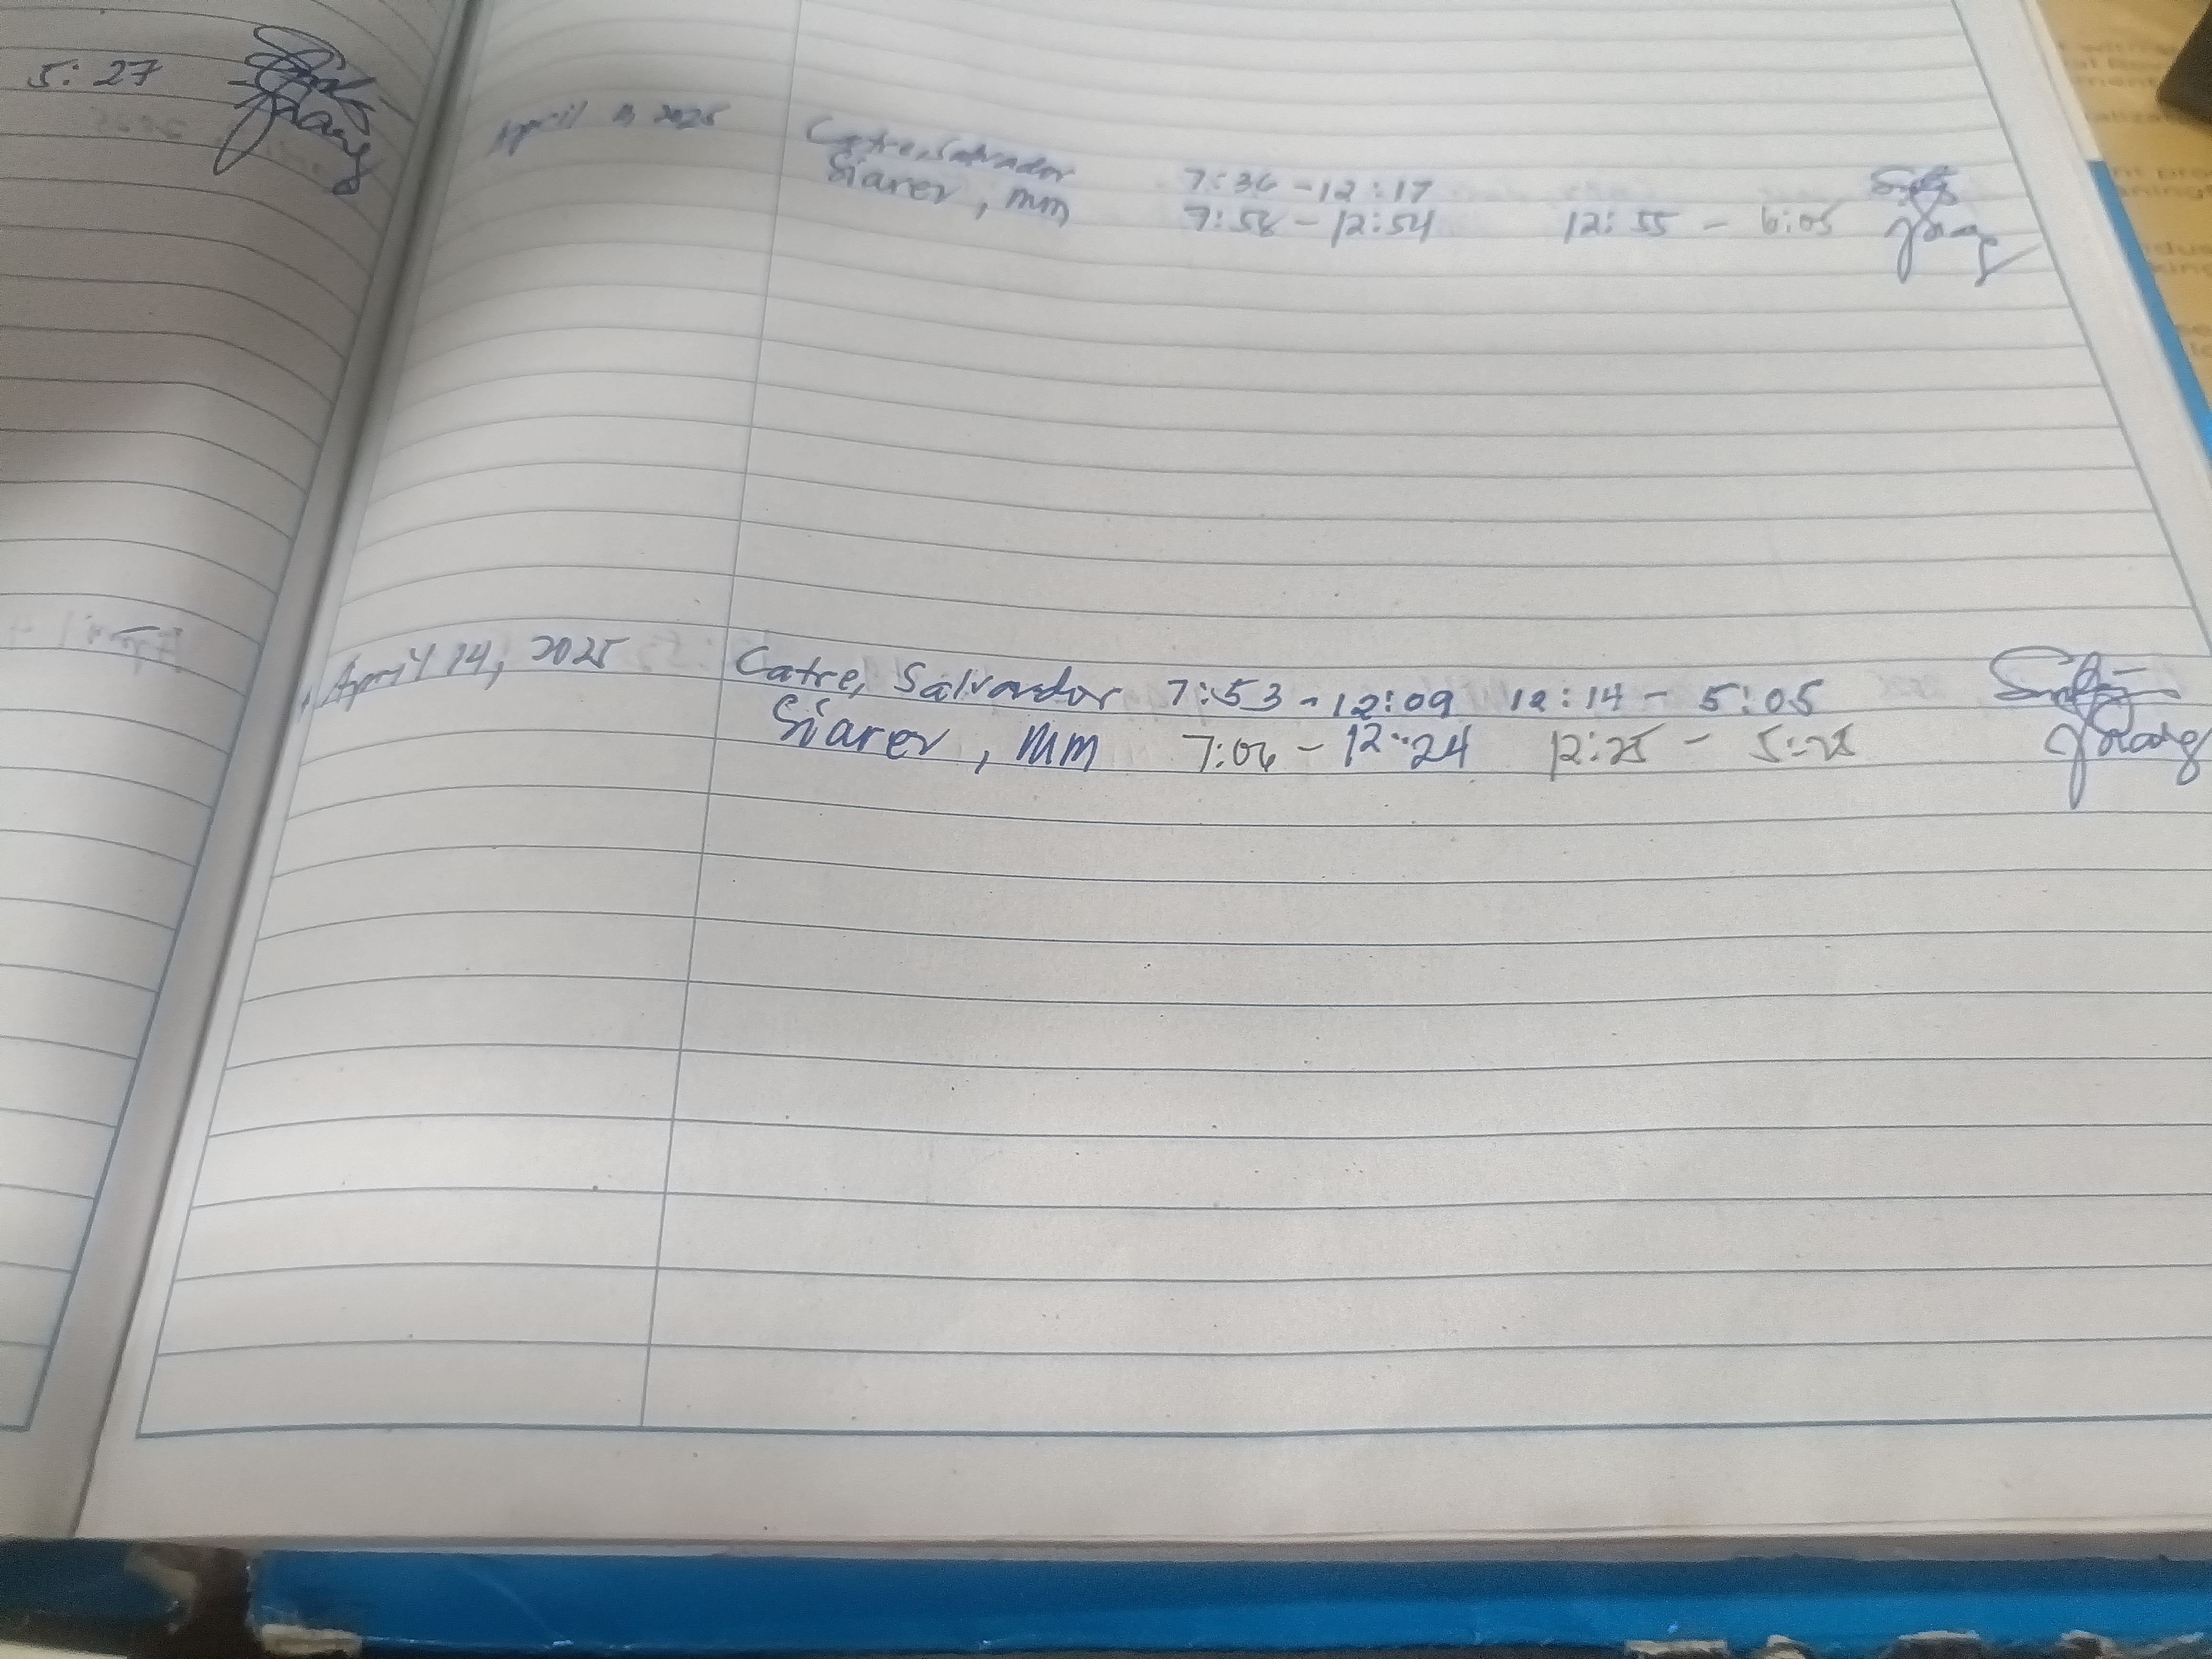 5:27
April 2025
Catre, Salvador 7:36 - 12:17
Siarev, mm 7:58 - 12:54 12:55 - 6:05
April 14, 2025 Catre, Salvador 7:53 - 12:09 12:14 - 5:05
Siarev, mm 7:06 - 12:24 12:25 - 5:25